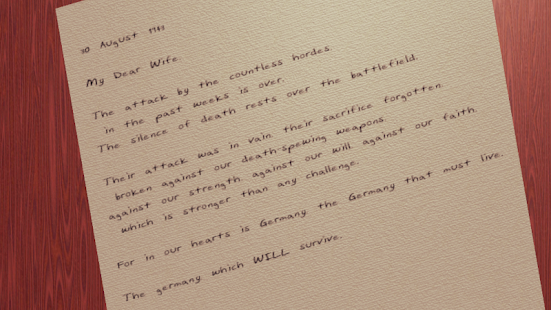 August
My Dear Wife
The attack by the countless hordes.
in the past weeks is over.
The silence of death rests over the battlefield.
Their attack was in vain. their sacrifice forgotten.
broken against our death-spewing weapons.
against our strength. against our will. against our faith.
which is stronger than any challenge.
For in our hearts is Germany. the Germany that must live.
The germany which WILL survive.